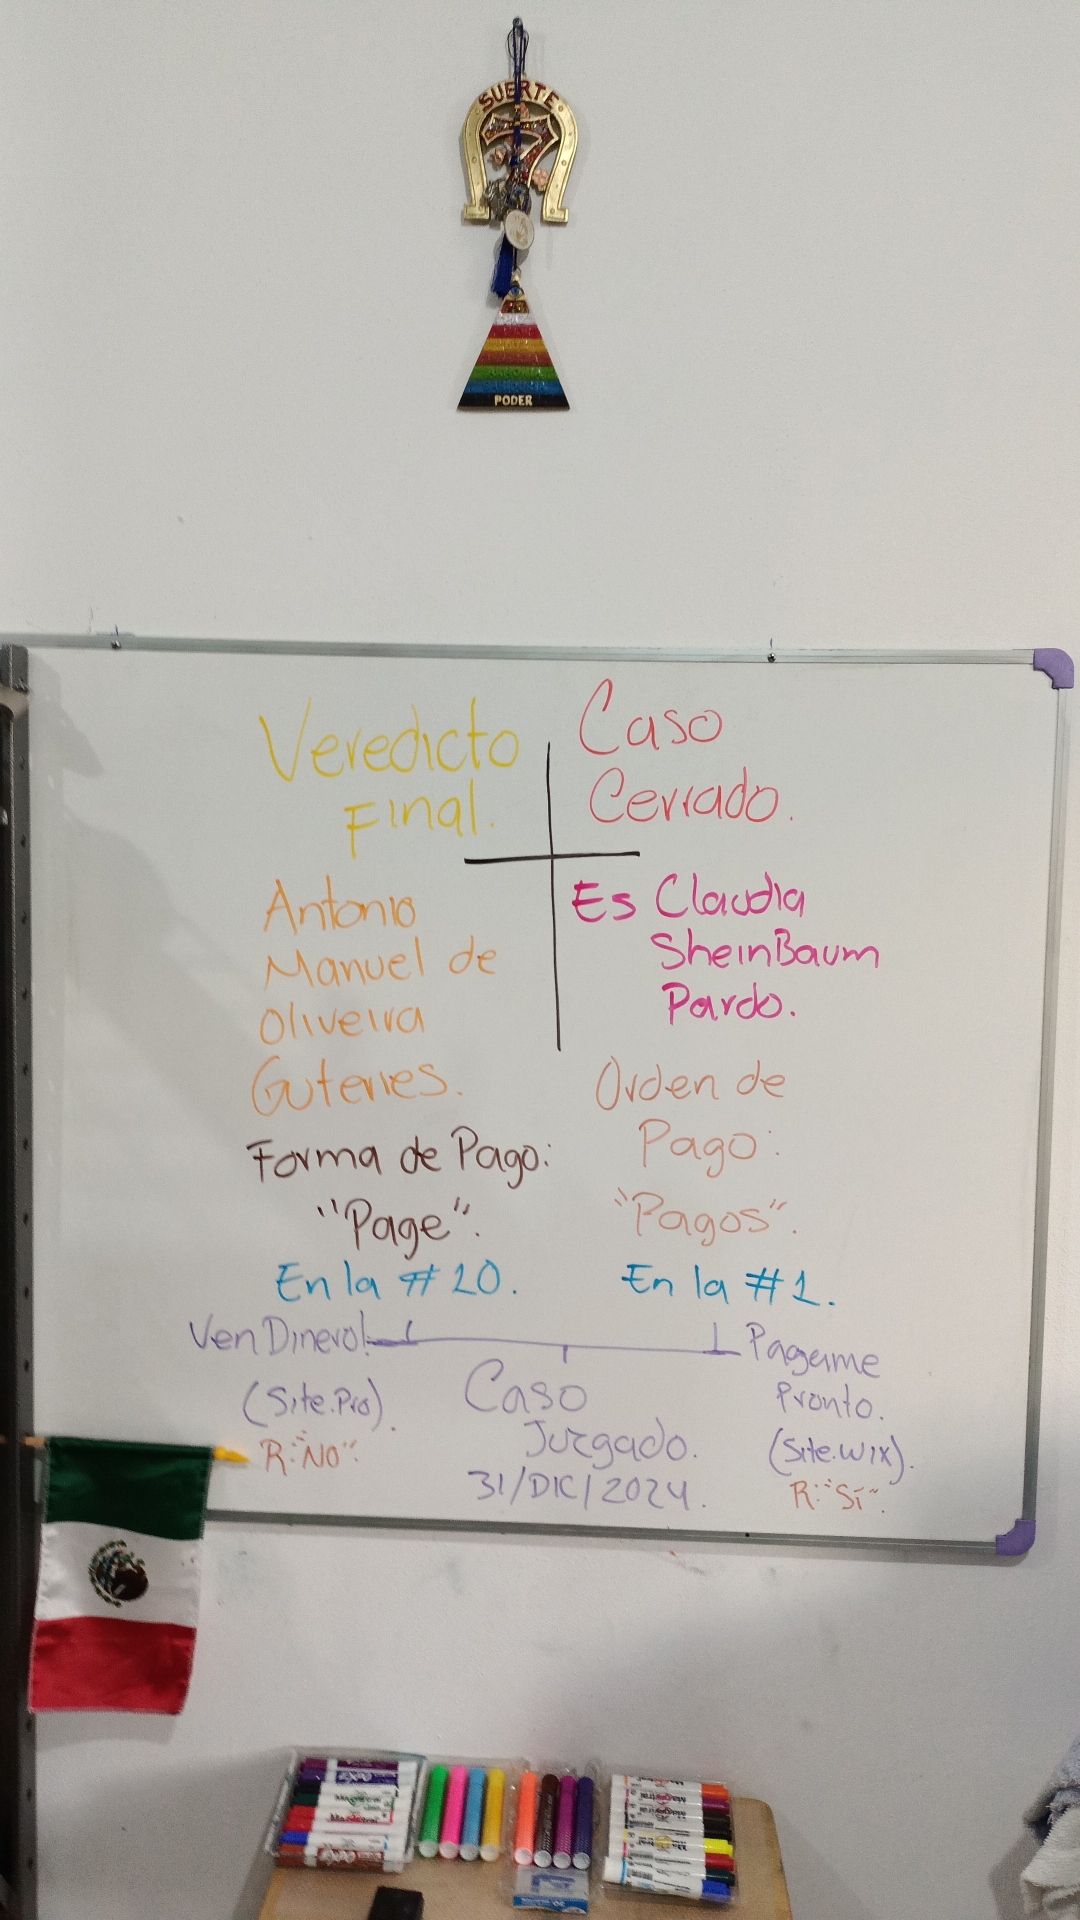 SUERTE
PODER
Veredicto
Final.
Caso
Cerrado.
Antonio
Manuel de
Oliveira
Guterres.
Es Claudia
SheinBaum
Pardo.
Forma de Pago:
"Page".
En la # 10.
Orden de
Pago:
"Pagos".
En la #1.
Ven Dinero!
(Site.Pro).
R:"No".
Pageme
Pronto.
(Site.wix).
R:"Sí".
Caso
Juzgado.
31/DIC/2024.
EXPO
EXPO